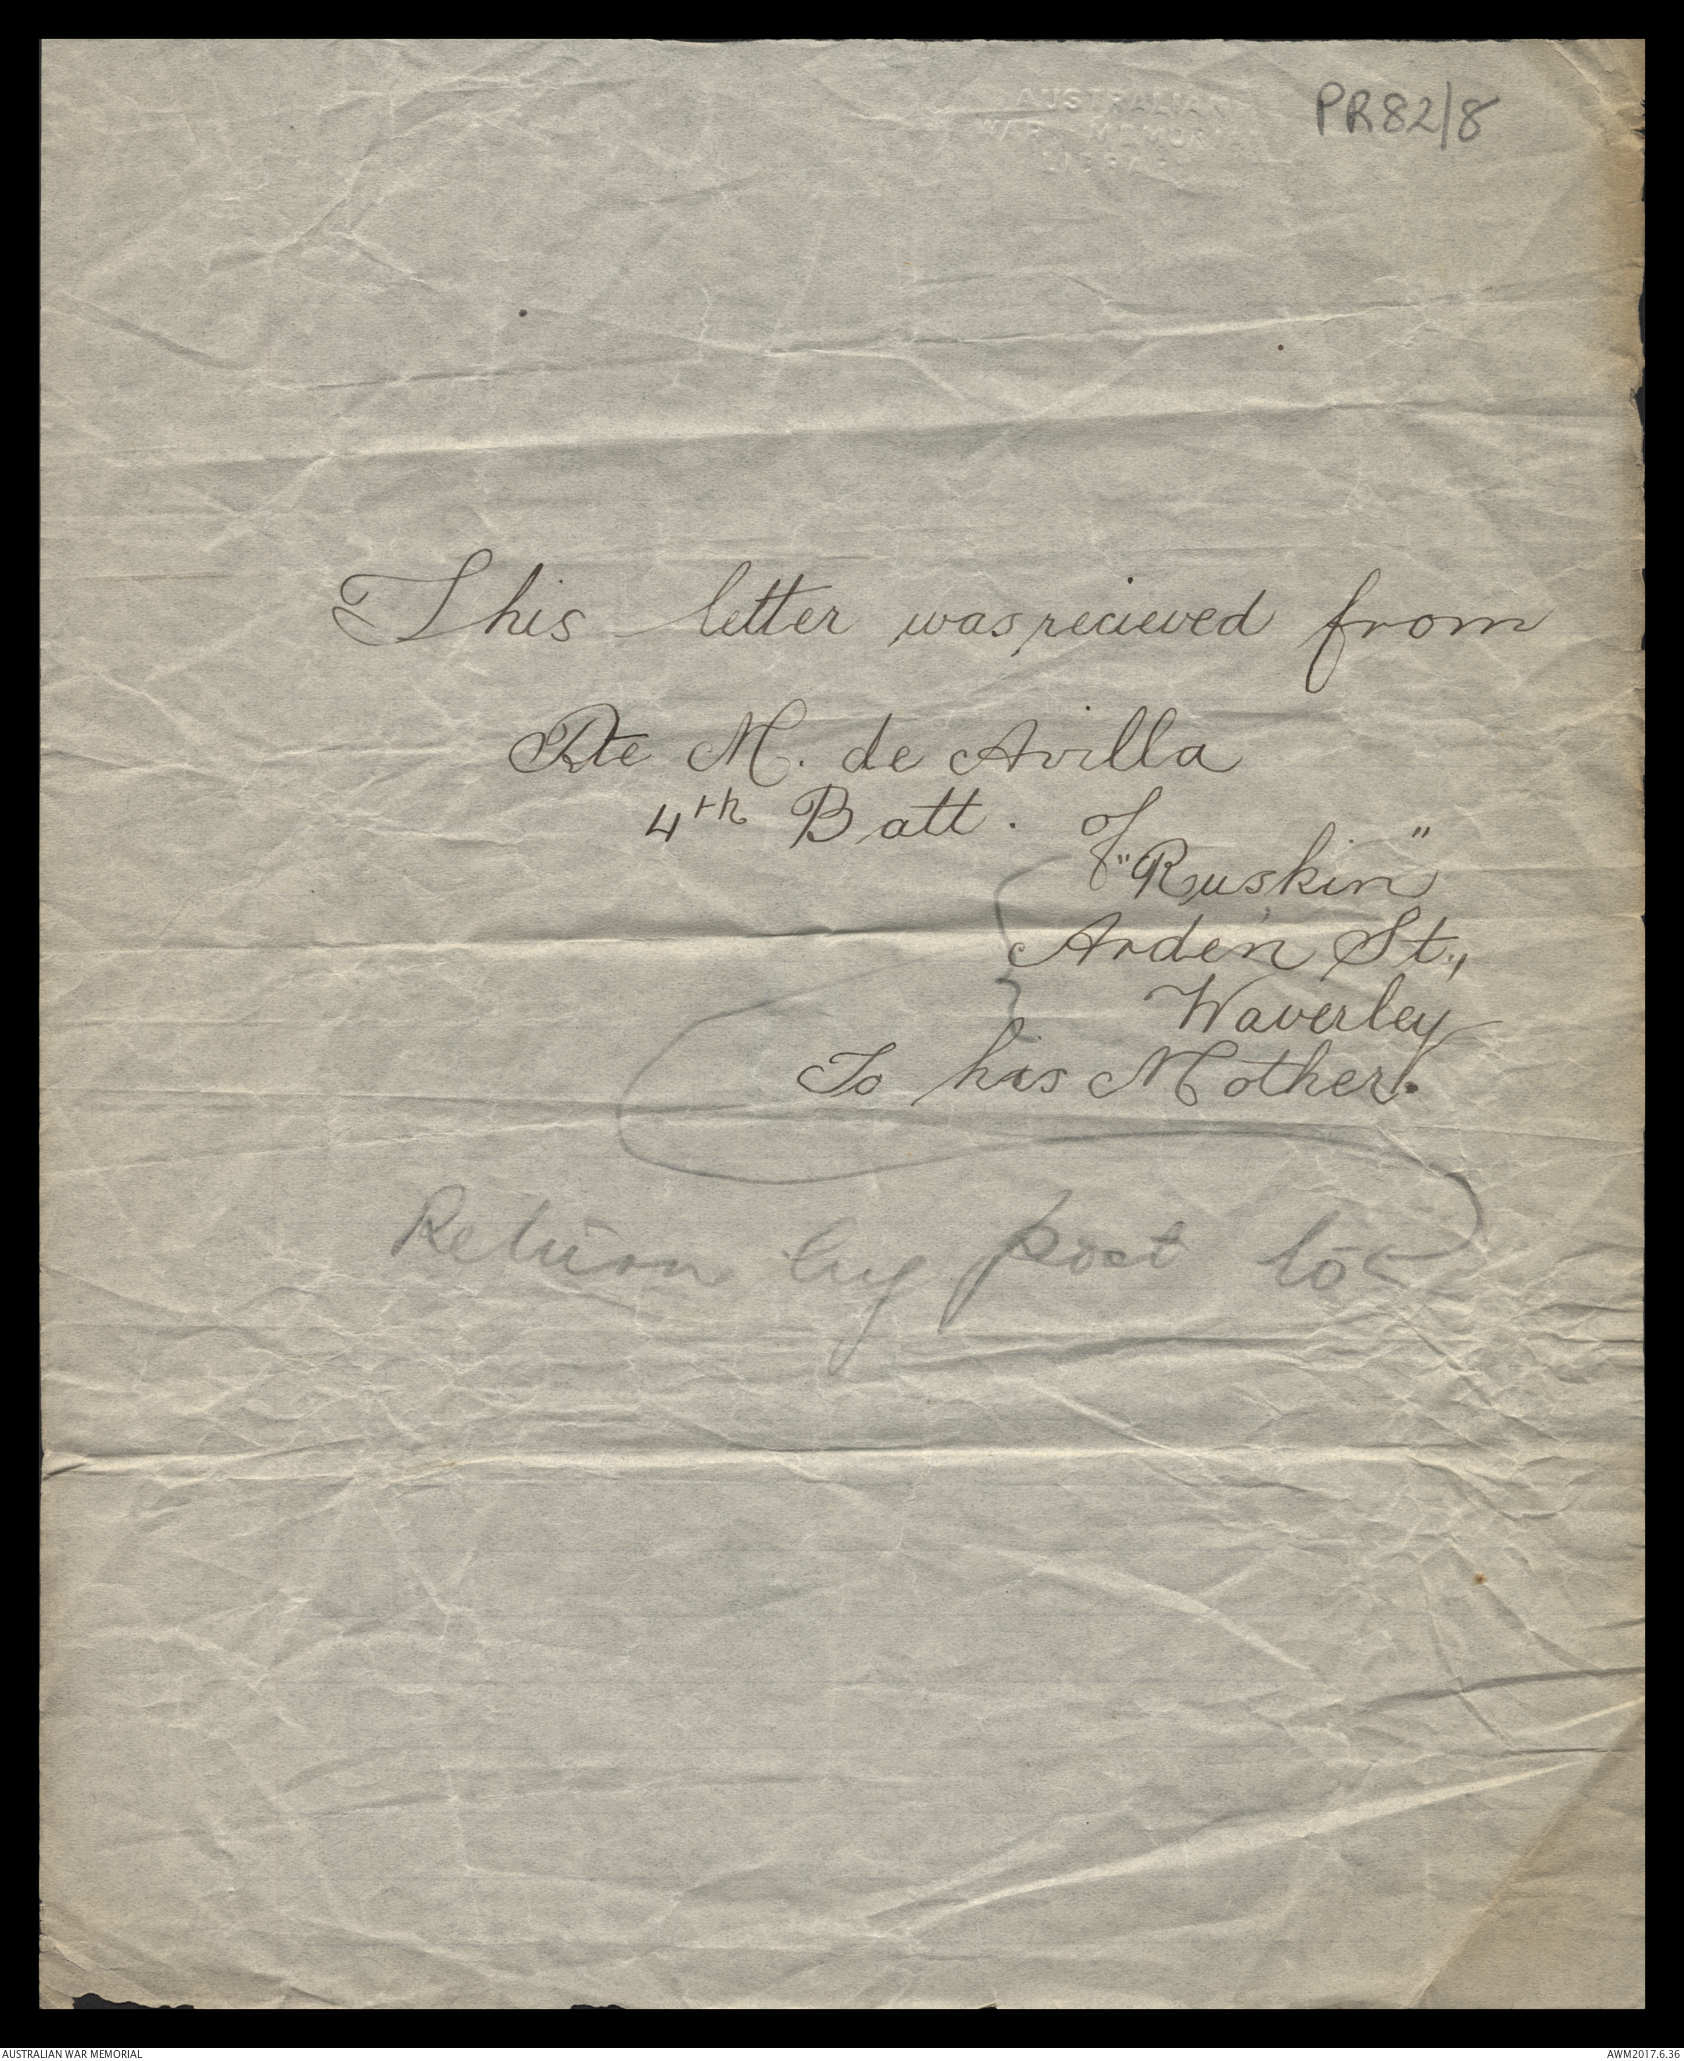 AUSTRALIAN
WAR MEMORIAL
LIBRARY
PR82/8
This letter was recieved from
Pte M. de Avilla
4th Batt. of
"Ruskin"
Arden St.,
Waverley
To his Mother.
Return by post to
AUSTRALIAN WAR MEMORIAL
AWM2017.6.36